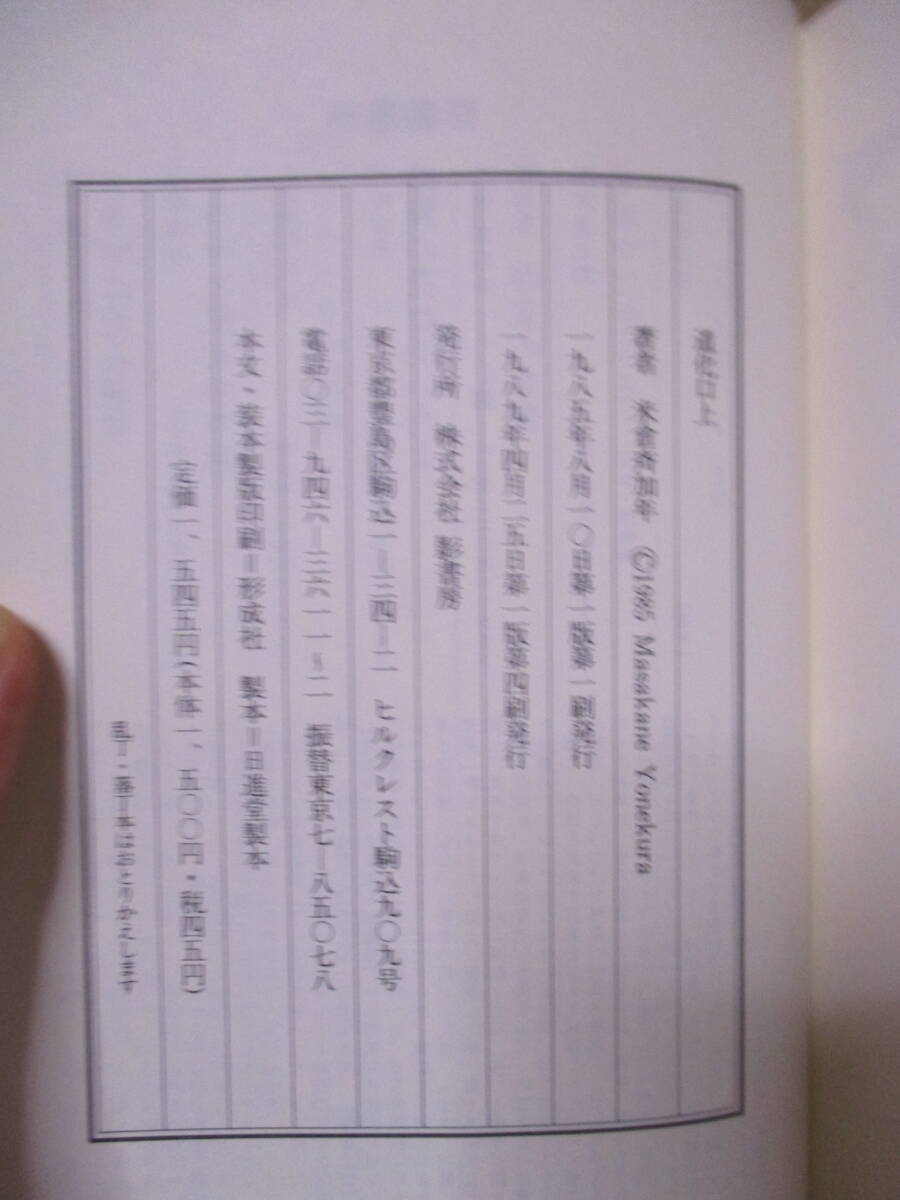 道化口上
著者 米倉斉加年 ©1985 Masakane Yonekura
一九八五年八月一〇日第一版第一刷発行
一九八九年四月二五日第一版第四刷発行
発行所 株式会社 影書房
東京都豊島区駒込一―三四―二 ヒルクレスト駒込九〇九号
電話〇三―九四六―三六一一~二 振替東京七―八五〇七八
本文・装本製版印刷=形成社 製本=日進堂製本
定価一、五四五円(本体一、五〇〇円・税四五円)
乱丁・落丁本はおとりかえします